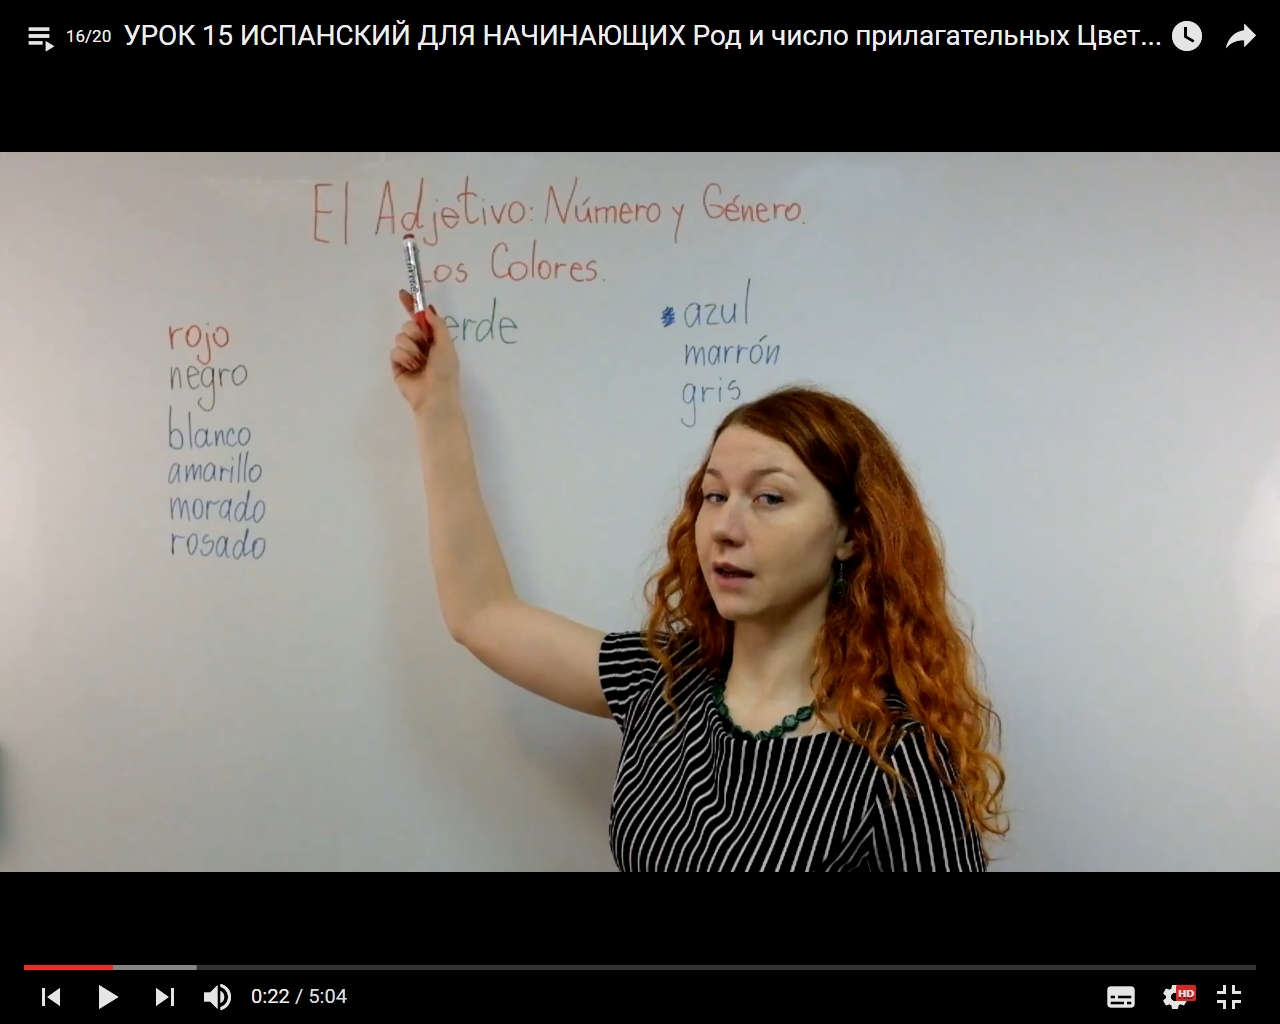 16/20 УРОК 15 ИСПАНСКИЙ ДЛЯ НАЧИНАЮЩИХ Род и число прилагательных Цвет...
El Adjetivo: Número y Género.
Los Colores.
rojo
negro
blanco
amarillo
morado
rosado
erde
azul
marrón
gris
0:22 / 5:04
HD